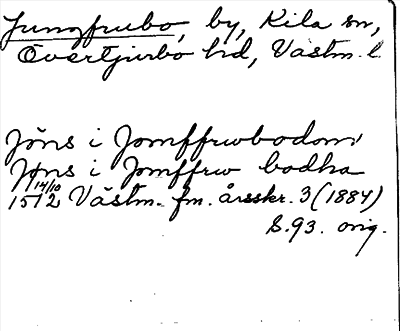 Jungfrubo, by, Kila sn,
Övertjurbo hd, Västm. l.
Jöns i Jomffrwbodom
Jöns i Jomffrw bodha
14/10
1512 Västm. fm. årsskr. 3 (1884)
S. 93. orig.